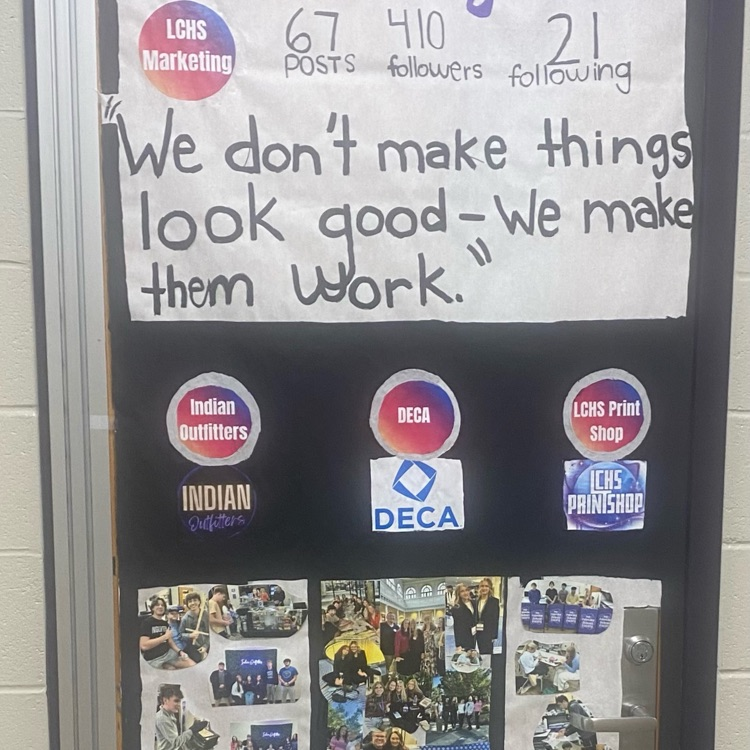 LCHS
Marketing
67 410 21
POSTS followers following
"We don't make things
look good - We make
them work."
Indian
Outfitters
DECA
LCHS Print
Shop
INDIAN
Outfitters
DECA
LCHS
PRINTSHOP